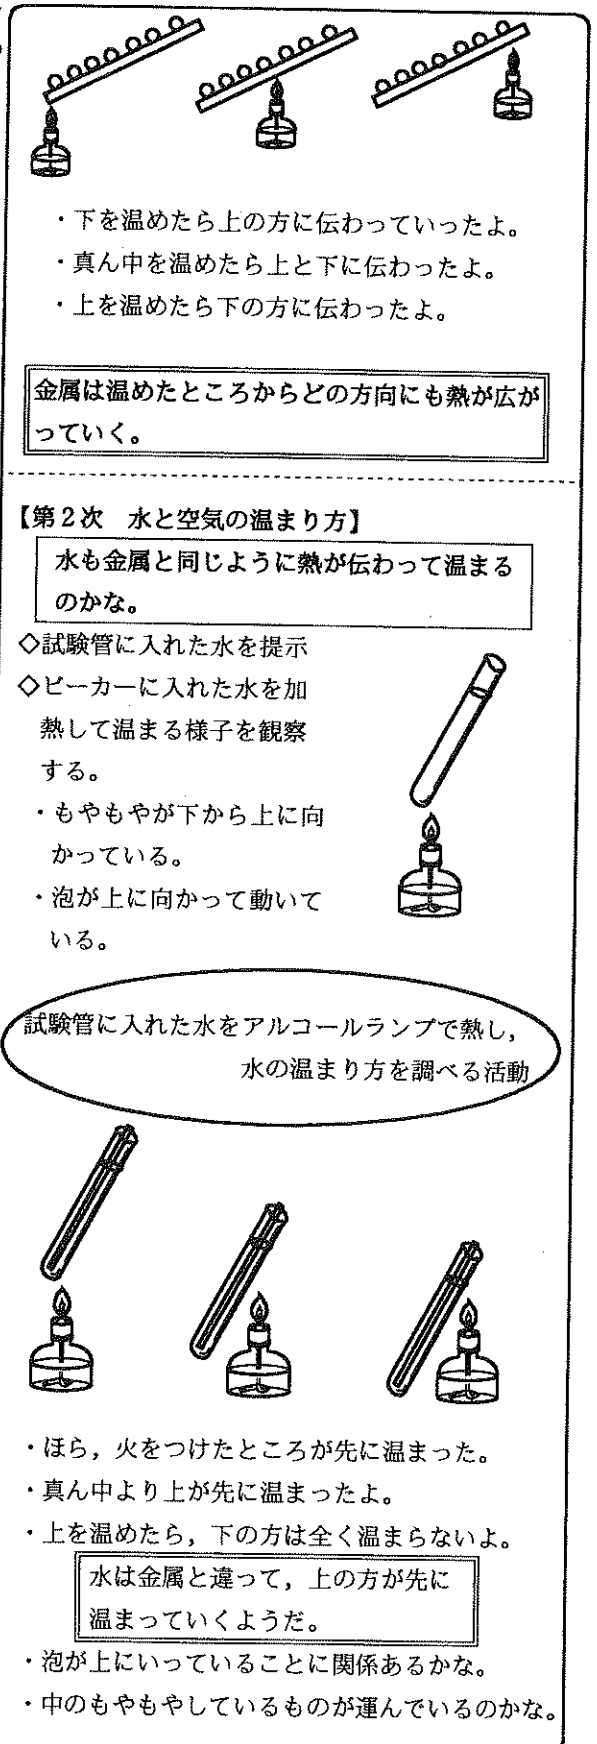 ・下を温めたら上の方に伝わっていったよ。
・真ん中を温めたら上と下に伝わったよ。
・上を温めたら下の方に伝わったよ。
金属は温めたところからどの方向にも熱が広が
っていく。
【第2次　水と空気の温まり方】
水も金属と同じように熱が伝わって温まる
のかな。
◇試験管に入れた水を提示
◇ビーカーに入れた水を加
熱して温まる様子を観察
する。
・もやもやが下から上に向
かっている。
・泡が上に向かって動いて
いる。
試験管に入れた水をアルコールランプで熱し，
水の温まり方を調べる活動
・ほら，火をつけたところが先に温まった。
・真ん中より上が先に温まったよ。
・上を温めたら，下の方は全く温まらないよ。
水は金属と違って，上の方が先に
温まっていくようだ。
・泡が上にいっていることに関係あるかな。
・中のもやもやしているものが運んでいるのかな。